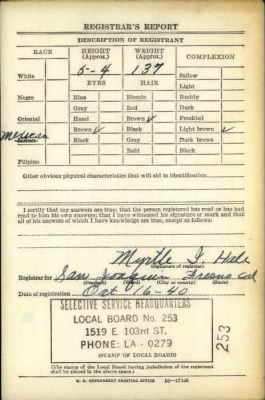 REGISTRAR'S REPORT
DESCRIPTION OF REGISTRANT
RACE HEIGHT (Approx.) WEIGHT (Approx.) COMPLEXION
White 5-4 137 Sallow
EYES HAIR Light
Negro Blue Blonde Ruddy
Gray Red Dark
Oriental Hazel Brown ✓ Freckled
Mexican Brown ✓ Black Light brown ✓
Indian Black Gray Dark brown
Filipino Bald Black
Other obvious physical characteristics that will aid in identification
I certify that my answers are true; that the person registered has read or has had
read to him his own answers; that I have witnessed his signature or mark and that
all of his answers of which I have knowledge are true, except as follows:
Myrtle I. Hale
(Signature of registrar)
Registrar for San Joaquin Fresno Cal
(Precinct) (Ward) (City or county) (State)
Date of registration Oct 16-40
SELECTIVE SERVICE HEADQUARTERS
LOCAL BOARD No. 253
1519 E. 103rd ST.
PHONE: LA - 0279
(STAMP OF LOCAL BOARD)
253
(The stamp of the Local Board having jurisdiction of the registrant
shall be placed in the above space.)
U. S. GOVERNMENT PRINTING OFFICE 16-17105